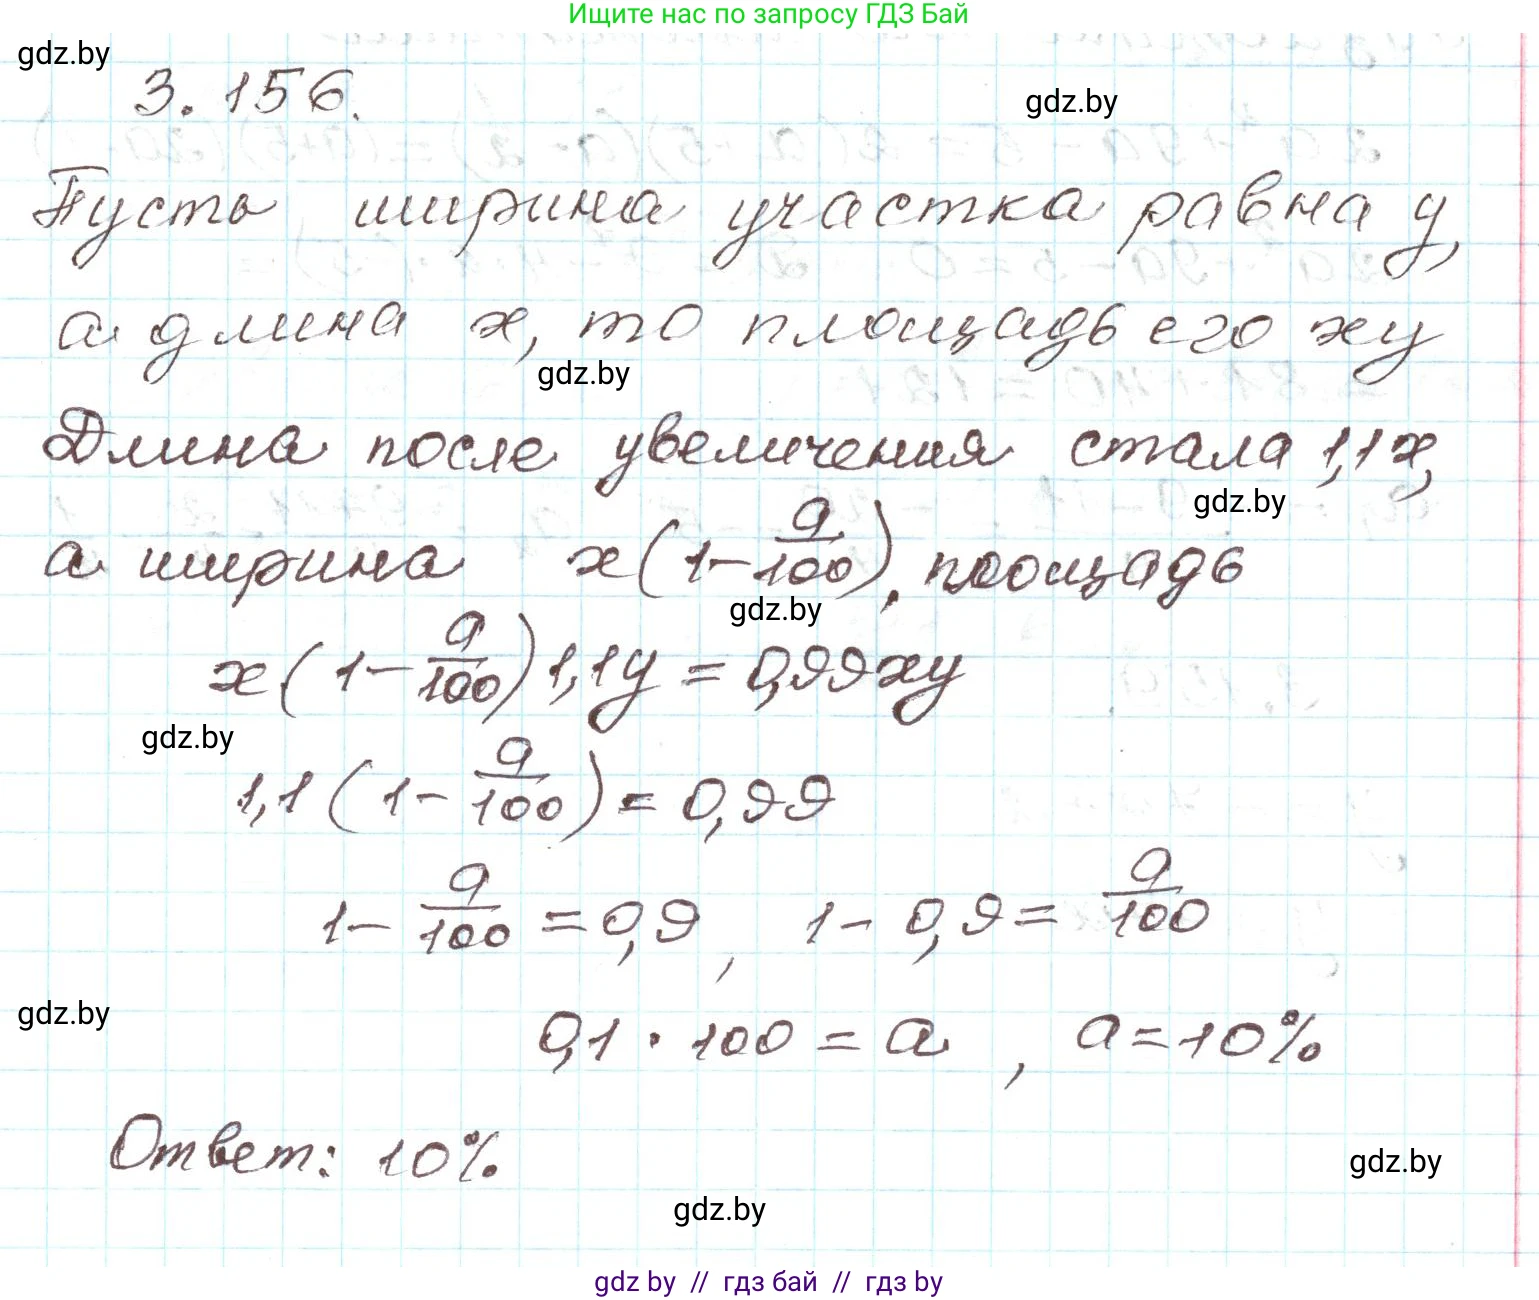 Ищите нас по запросу ГДЗ Бай
gdz.by
3.156.
gdz.by
Пусть ширина участка равна y,
а длина x, то площадь его xy
gdz.by
Длина после увеличения стала 1,1x,
gdz.by
а ширина x(1-a/100), площадь
gdz.by
x(1-a/100)1,1y = 0,99xy
gdz.by
1,1(1-a/100) = 0,99
1-a/100 = 0,9, 1-0,9 = a/100
gdz.by
0,1·100 = a, a = 10%
Ответ: 10%
gdz.by
gdz.by
gdz by // гдз бай // гдз by